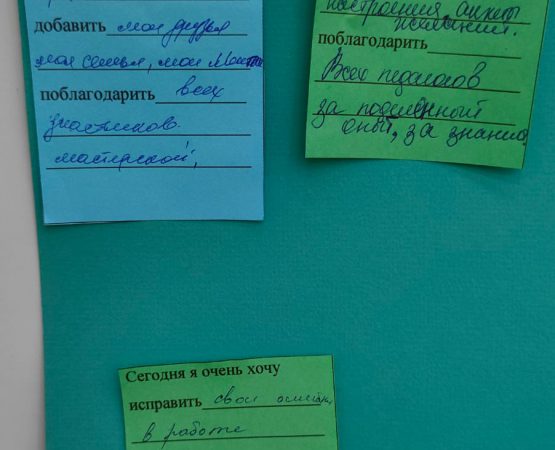 добавить мои друзья
моя семья, мои
поблагодарить всех
участников
мастерской,
настроения,
поблагодарить
Всех педагогов
за поделенный
опыт, за знания
Сегодня я очень хочу
исправить свои ошибки
в работе